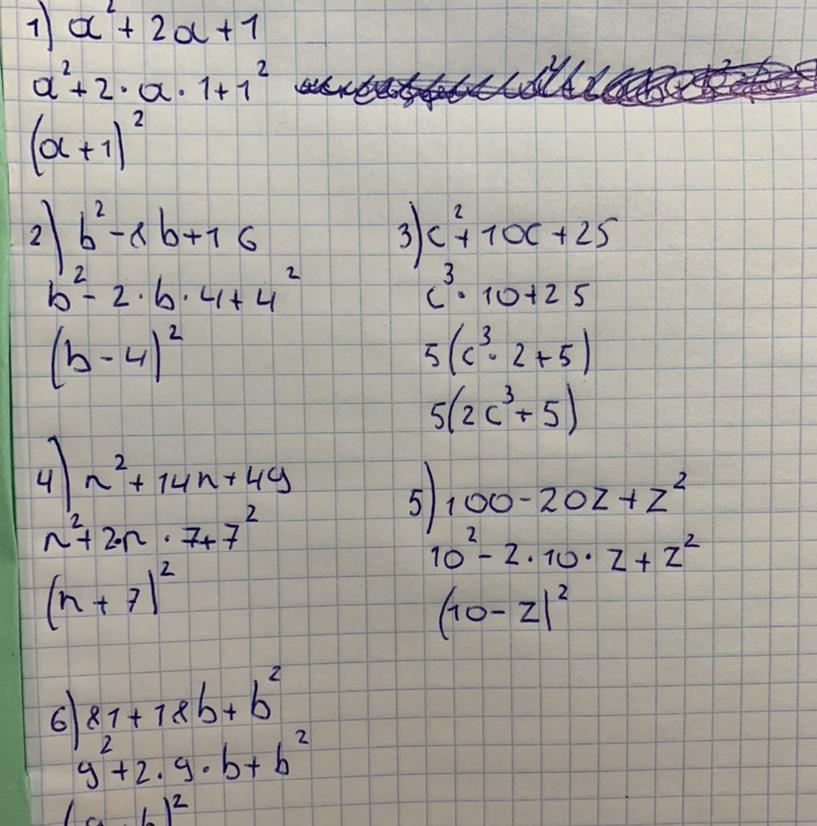 1) a² + 2a + 1
a² + 2 · a · 1 + 1²
(a + 1)²
2) b² - 8b + 16
b² - 2 · b · 4 + 4²
(b - 4)²
3) c² + 10c + 25
c³ · 10 + 25
5(c³ · 2 + 5)
5(2c³ + 5)
4) n² + 14n + 49
n² + 2·n · 7 + 7²
(n + 7)²
5) 100 - 20z + z²
10² - 2 · 10 · z + z²
(10 - z)²
6) 81 + 18b + b²
9² + 2 · 9 · b + b²